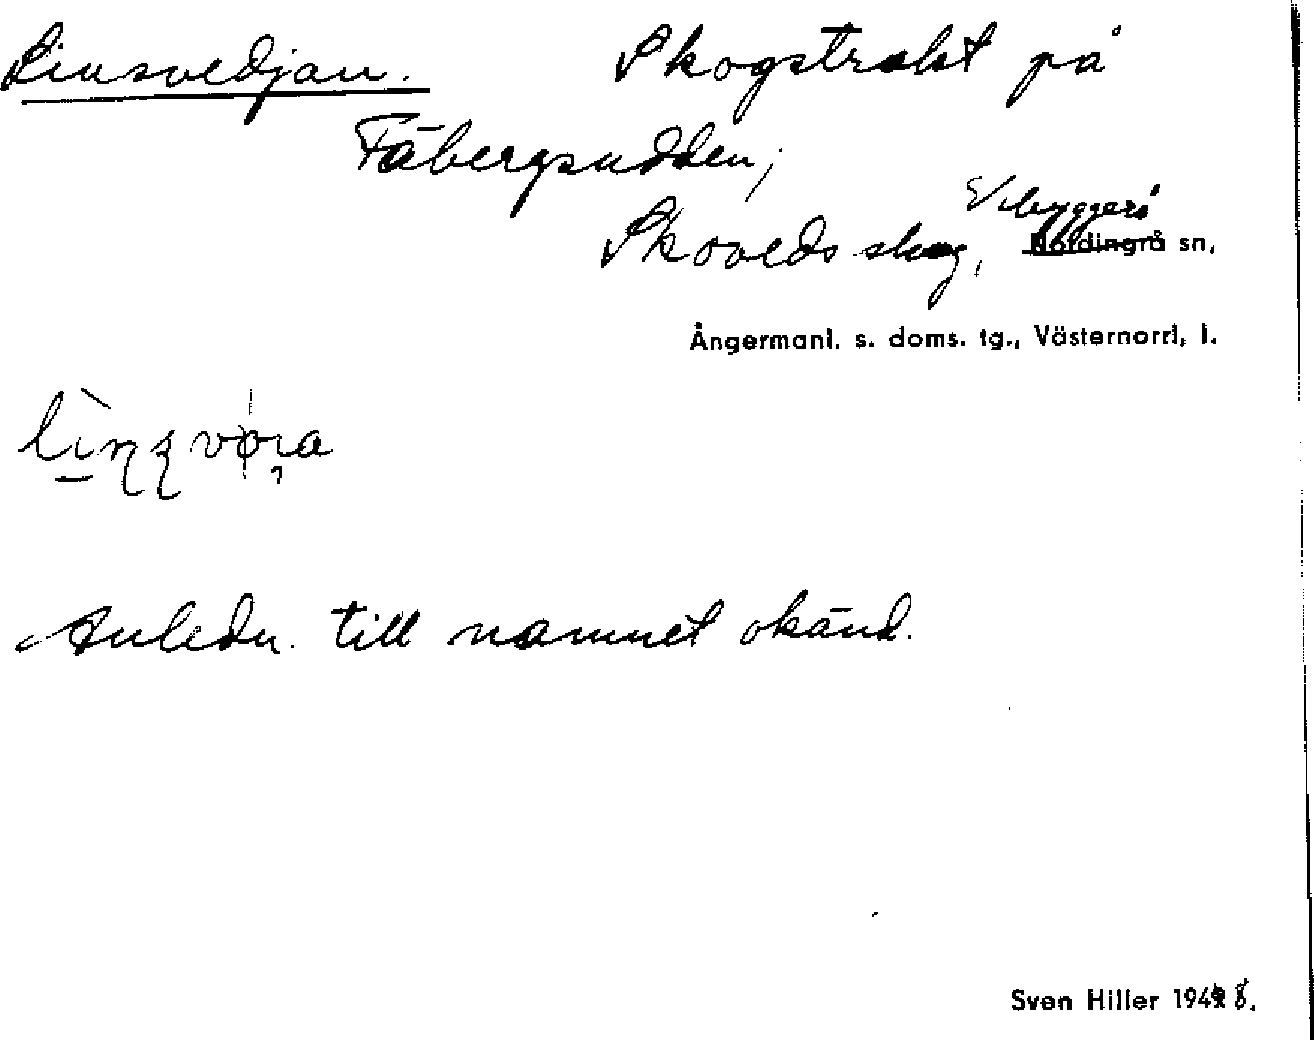 Linsvedjan. Skogstrakt på
Fäbergsudden,
Skoveds skog, Vibyggerå
Nordingrå sn,
Ångermanl. s. doms. tg., Västernorrl. l.
Anledn. till namnet okänd.
Sven Hiller 1948.